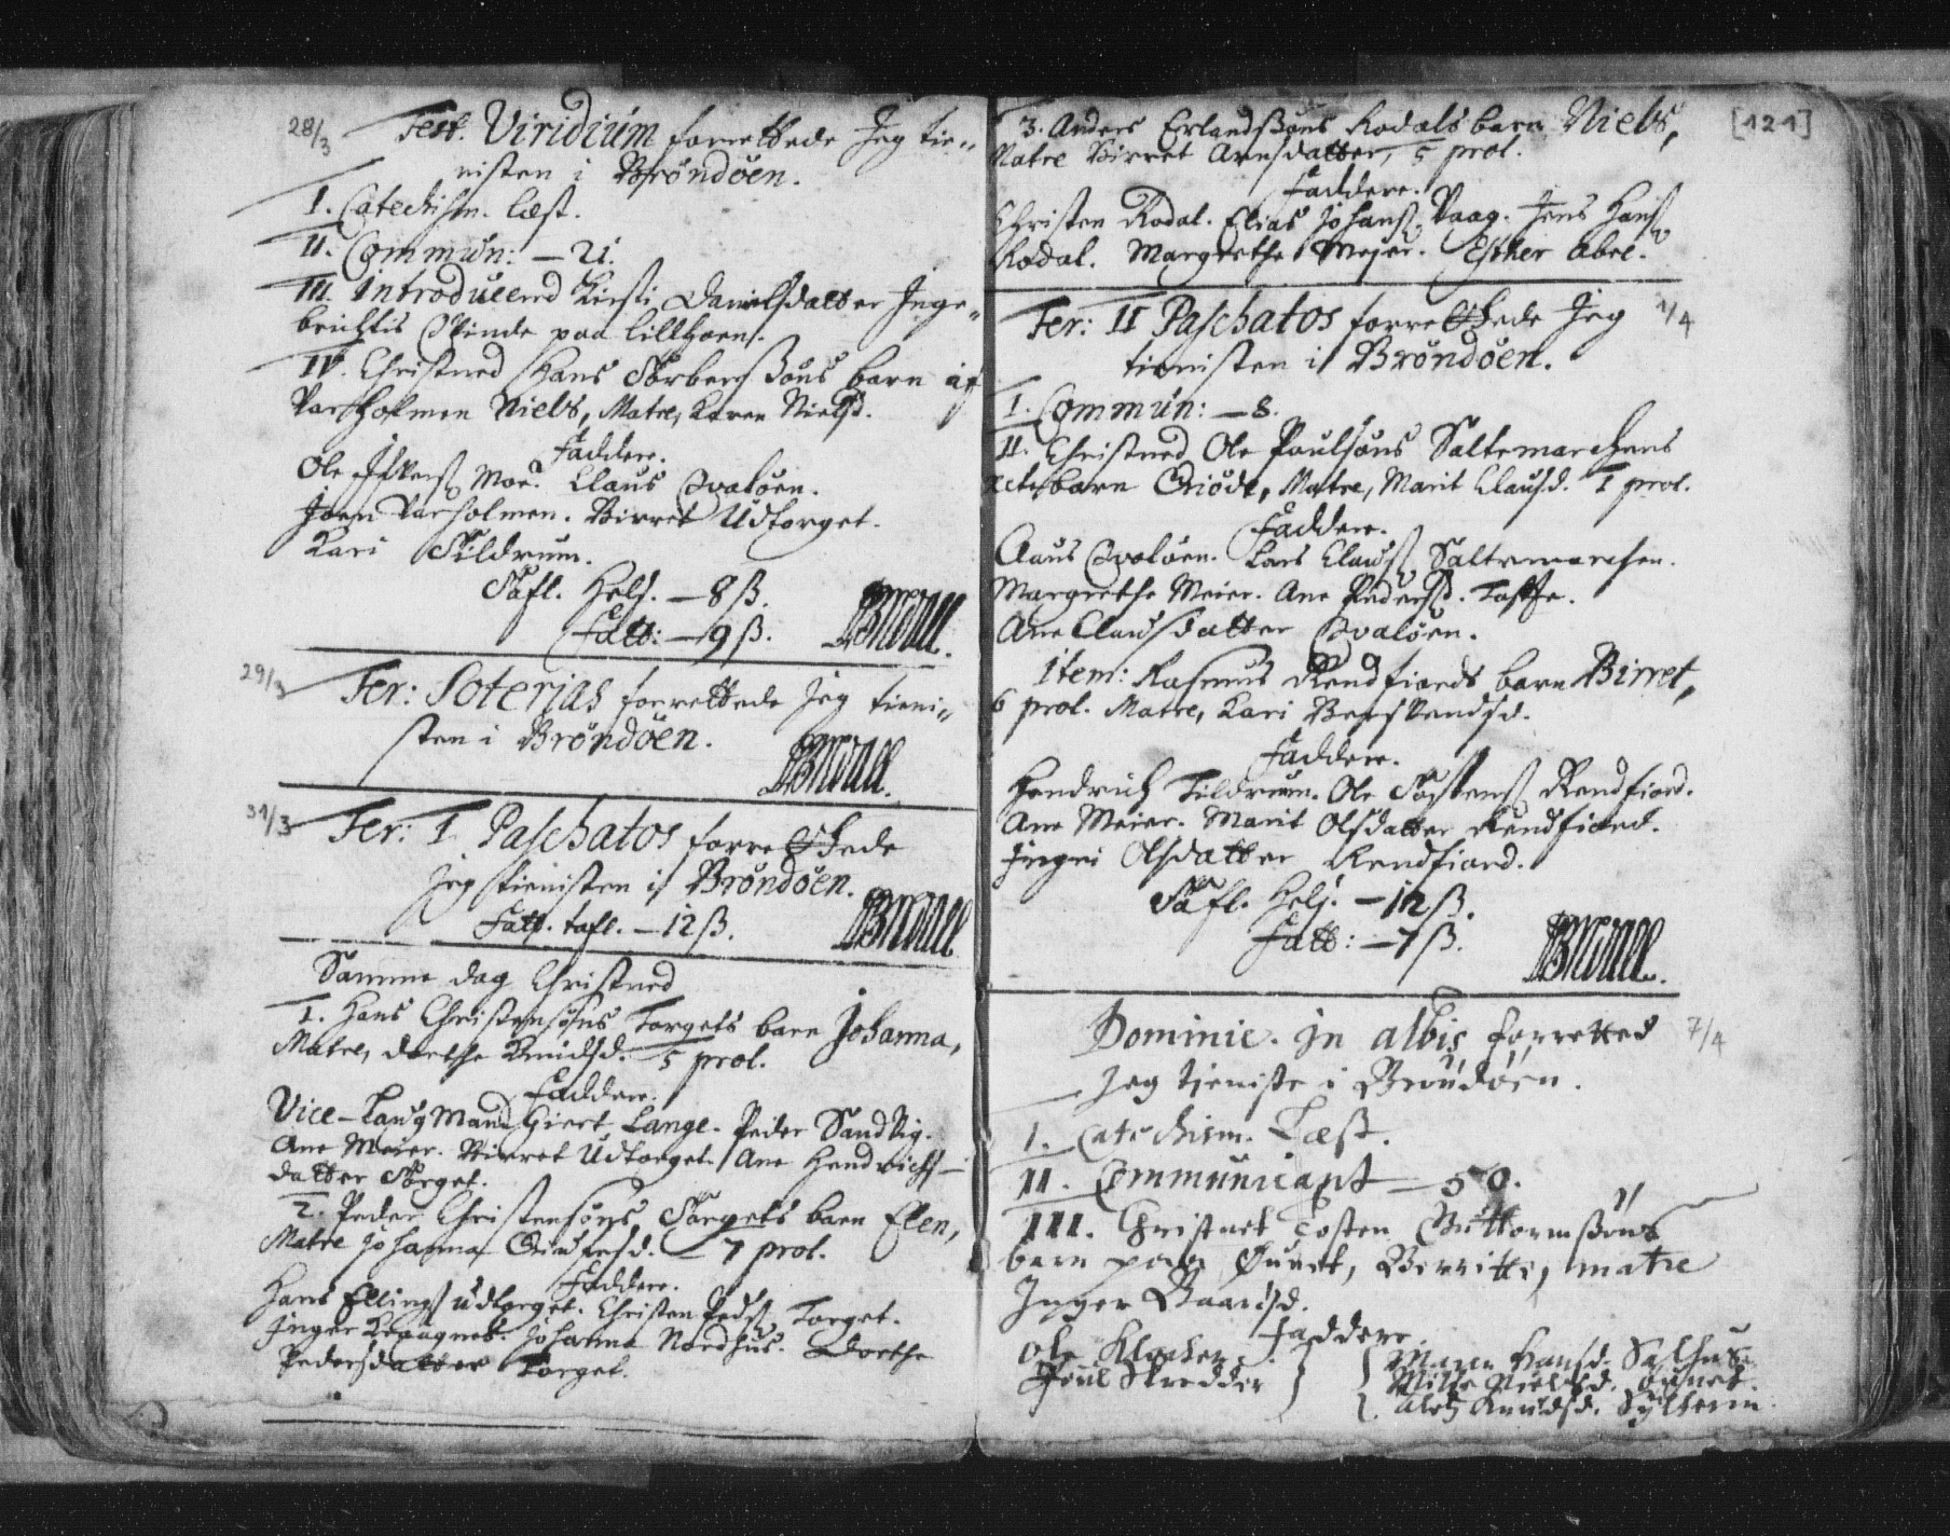 28/3 Fest. Viridium forrettede Jeg tie-
nisten i Bröndöen.
I. Catechism. læst.
II. Commun: — 21.
III. Introducered Kirsti Danielsdatter Inge-
brichtis Qvinde paa Lillhorn.
IV. Christned Hans Torbersøns barn af
Niels, Matre, Karen Nielsd.
Faddere.
Ole Moe. Claus Qvaløen.
Joen Varholmen. Birret Udtorget.
Kari Tildrum.
Tafl. Hels. — 8 ß.
Fatt: — 9 ß.
29/3 Fer: Soterias forrettede Jeg tieni-
sten i Bröndöen.
31/3 Fer: I Paschatos forrettede
Jeg tienisten i Bröndöen.
Fatt. tafl. — 12 ß.
Samme dag Christned
1. Hans Christensøns Torgets barn Johanna,
Matre, Dorthe Knudsd. 5 prol.
Faddere.
Vice-Laugmand Giert Lange. Peder Sandvig.
Ane Meier. Birret Udtorget. Ane Hendrichs-
datter Torget.
2. Peder Christensøns Torgets barn Elen,
Matre Johanna — 7 prol.
Faddere.
Hans Ellings Udtorget. Christen Peds Torget.
Inger Johanna Nordhus. Dorthe
Pedersdatter Torget.
[121]
3. Anders Erlandssøns Rodals barn Niels,
Matre Birret Arnsdatter, 5 prol.
Faddere.
Christen Rodal. Elias Johans Vaag. Jens Hans
Rodal. Margrethe Mejer. Esther Abel.
Fer: II Paschatos forrettede Jeg 1/4
tienisten i Bröndöen.
I. Commun: — 8.
II. Christned Ole Poulsøns Saltemarchens
barn Matre, Marit Clausd. 1 prol.
Faddere.
Claus Qvaløen. Lars Claus Saltemarchen.
Margrethe Meier. Ane Peders.
Ane Clausdatter Qvaløen.
Item: Rasmus Rendfiords barn Birret,
6 prol. Matre, Kari
Faddere.
Hendrich Tildrum. Ole Rendfiord.
Ane Meier. Marit Olsdatter Rendfiord.
Ingri Olsdatter Rendfiord.
Tafl. Hels. — 12 ß.
Fatt: — 7 ß.
Dominic. in albis forretted 7/4
Jeg tieniste i Bröndöen.
I. Catechism. Læst.
II. Communicant — 50.
III. Christnet Tosten Guttormssøns
barn paa Berritte, matre
Inger Baardsd.
Faddere.
Ole Klochen.
Poul Skredder
Maren Hansd. Salhus.
Mille Nielsd.
Knudsd. Sylteren